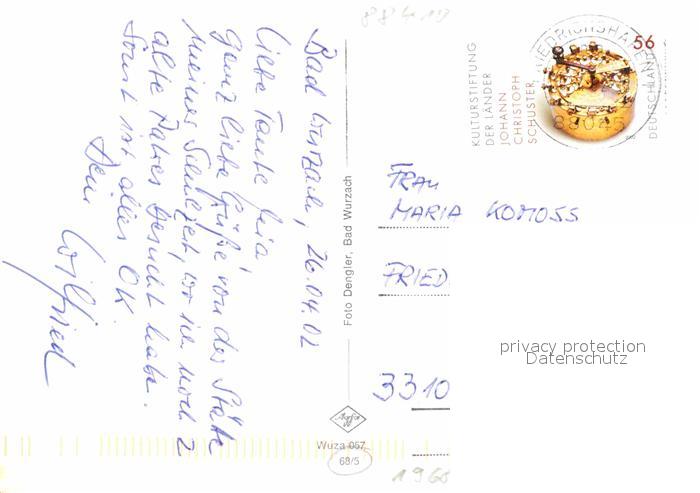 Bad Wurzach, 26.04.02
Liebe Tante Mia
ganz liebe Grüße von der Stätte
meiner Schulzeit, wo ich noch 2
alte Patres besucht habe.
Sonst ist alles OK.
Dein
Wilfried
Foto Dengler, Bad Wurzach
Agfa
Wuza 057
68/5
88410
KULTURSTIFTUNG
DER LÄNDER
JOHANN
CHRISTOPH
SCHUSTER
56
DEUTSCHLAND
FRIEDRICHSHAFEN
88045
FRAU
MARIA KOMOSS
FRIED
3310
privacy protection
Datenschutz